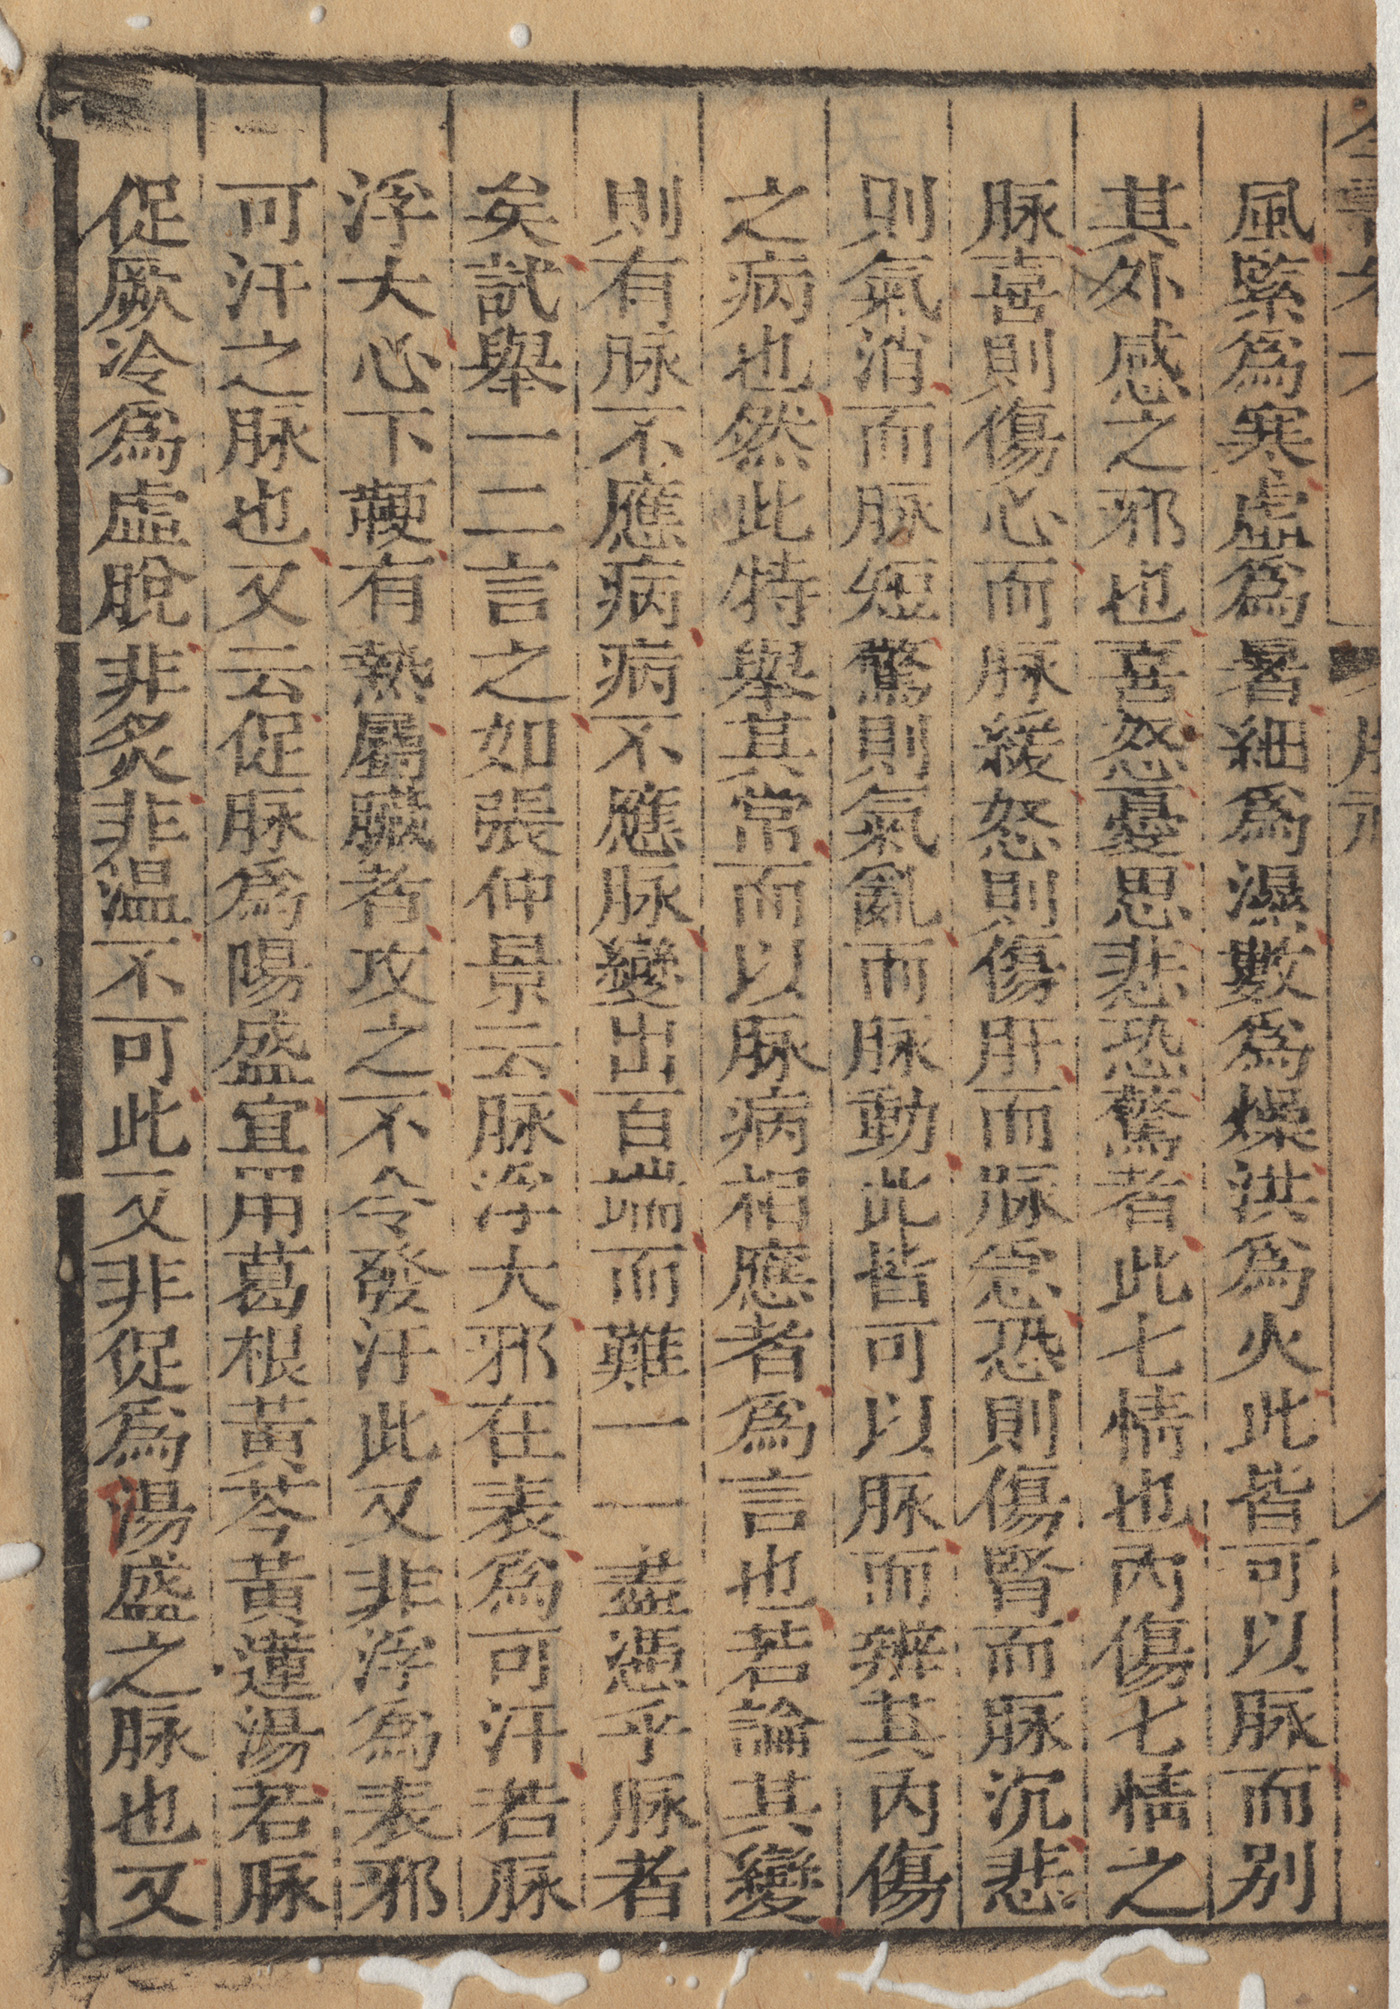 風緊爲寒虛爲暑細爲濕數爲燥洪爲火此皆可以脉而别
其外感之邪也喜怒憂思悲恐驚者此七情也内傷七情之
脉喜則傷心而脉緩怒則傷肝而脉急恐則傷腎而脉沉悲
則氣消而脉短驚則氣亂而脉動此皆可以脉而辨其内傷
之病也然此特舉其常而以脉病相應者爲言也若論其變
則有脉不應病病不應脉變出百端而難一一盡憑乎脉者
矣試舉一二言之如張仲景云脉浮大邪在表爲可汗若脉
浮大心下鞕有熱屬臟者攻之不令發汗此又非浮爲表邪
可汗之脉也又云促脉爲陽盛宜用葛根黄芩黄蓮湯若脉
促厥冷爲虛脫非炙非温不可此又非促爲湯盛之脉也又